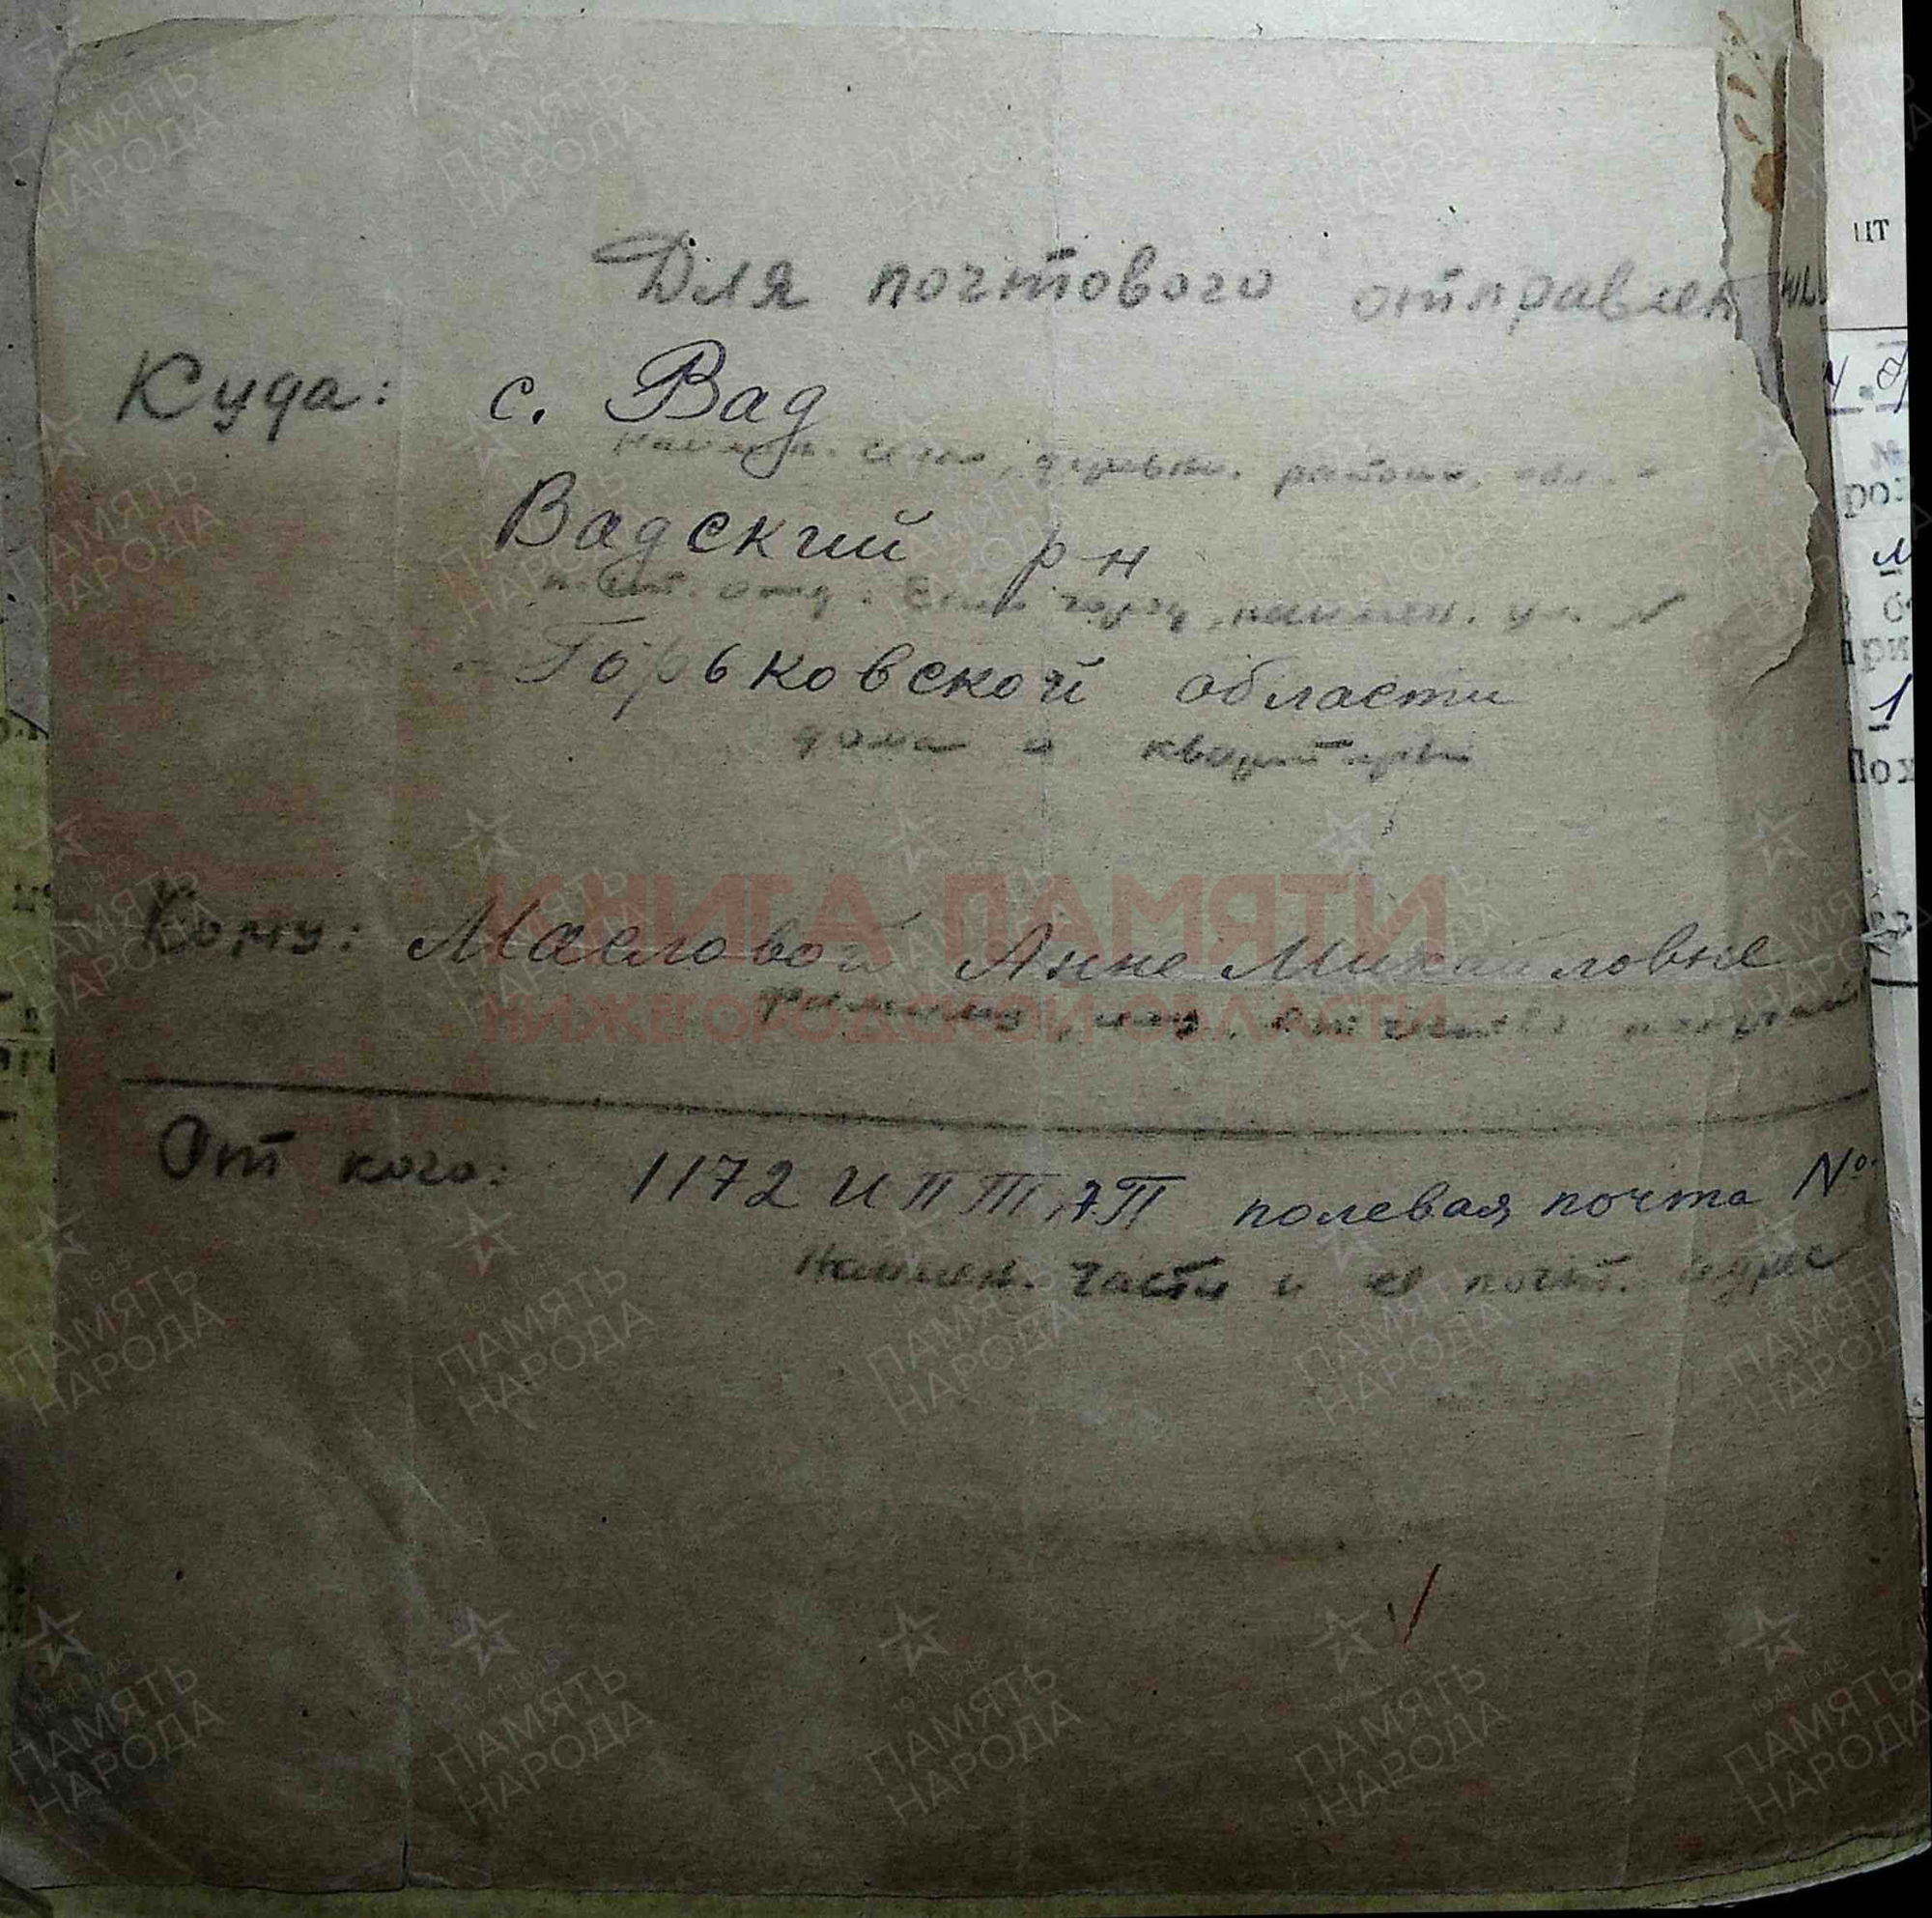 Для почтового отправлен
Куда: с. Вад
Наимен. села, деревни, района, обл.
Вадский р-н
почт. отд. Если город, наимен. ул.
Горьковской области
дома и квартиры
Кому: Масловой Анне Михайловне
КНИГА ПАМЯТИ
НИЖЕГОРОДСКОЙ ОБЛАСТИ
От кого: 1172 ИПТАП полевая почта №
Наимен. части и ее почт. адрес
ПАМЯТЬ
НАРОДА
1941-1945